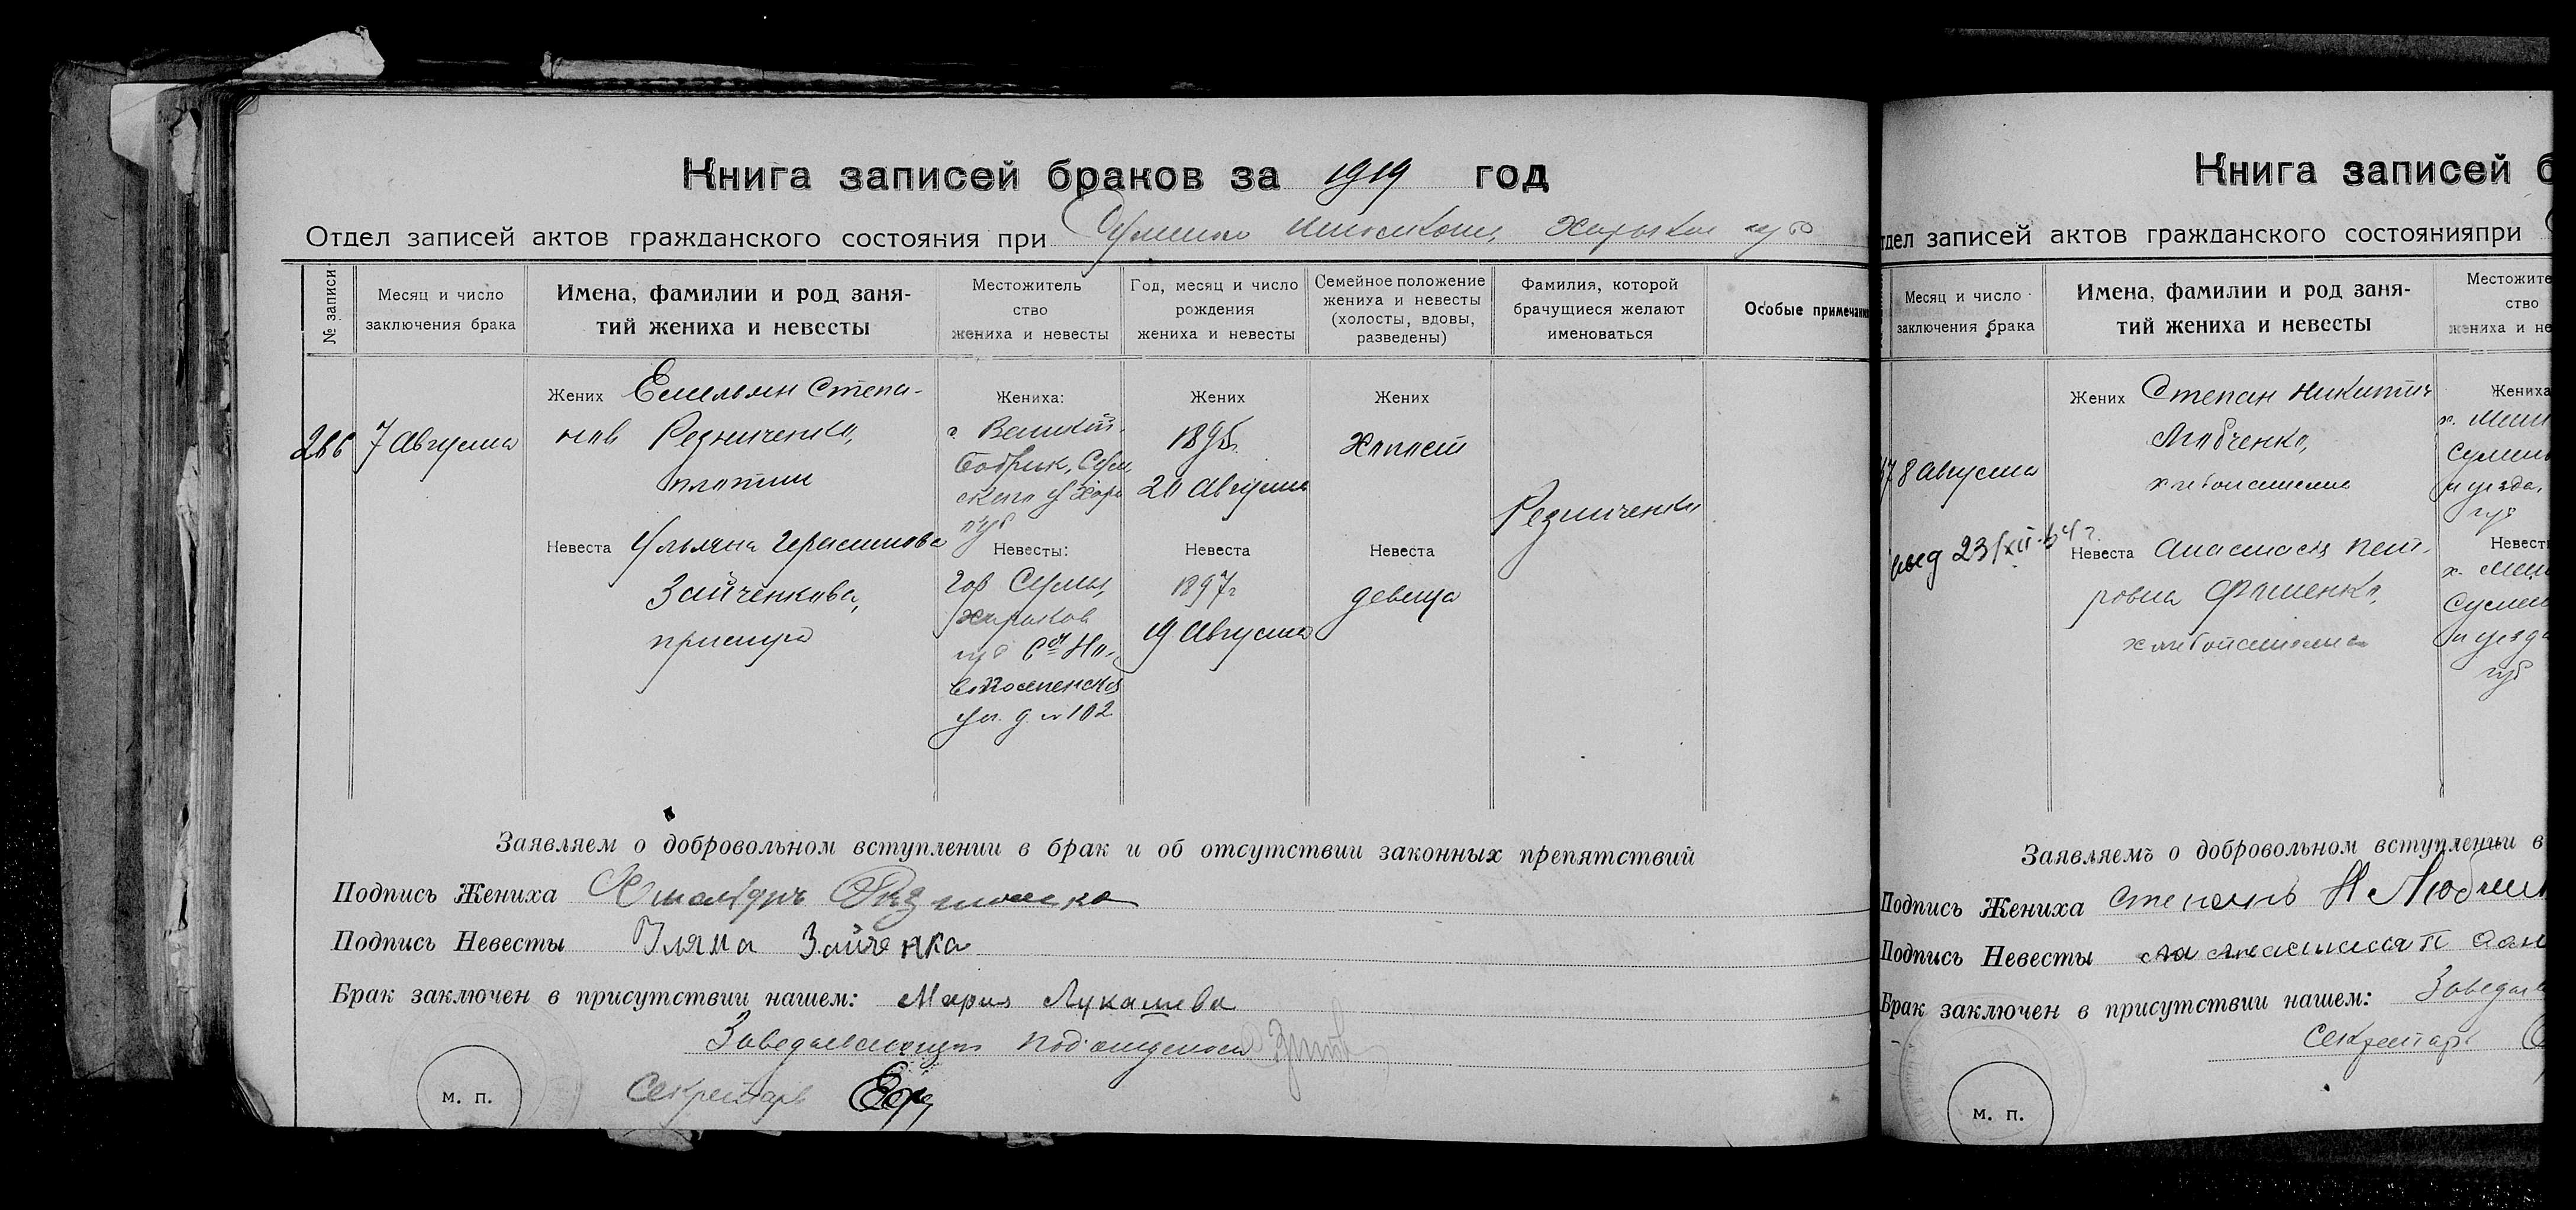 Книга записей браков за 1919 год
Отдел записей актов гражданского состояния при Сумском Исполкоме, Харьков губ
№ записи
Месяц и число
заключения брака
Имена, фамилии и род заня-
тий жениха и невесты
Местожитель
ство
жениха и невесты
Год, месяц и число
рождения
жениха и невесты
Семейное положение
жениха и невесты
(холосты, вдовы,
разведены)
Фамилия, которой
брачущиеся желают
именоваться
Особые примечания
266
7 Августа
Жених Емельян Степа-
нов Резниченко,
плотник
Невеста Ульяна Герасимова
Зайченкова,
прислуга
Жениха:
Бобрик, Сум
ского у Харь
губ
Невесты:
гор Сумы,
Харьков
губ
ул. д. № 102
Жених
189
20 Августа
Невеста
1897г
19 Августа
Жених
Холост
Невеста
девица
Резниченко
Заявляем о добровольном вступлении в брак и об отсутствии законных препятствий
Подпись Жениха
Подпись Невесты Уляна Зайченка
Брак заключен в присутствии нашем: Мария Лукашева
Заведывающий подотделом
Секретарь
м. п.
Книга записей б
тдел записей актов гражданского состоянияпри
Месяц и число
заключения брака
Имена, фамилии и род заня-
тий жениха и невесты
Местожите
ство
жениха и не
67 8 Августа
выд 23/XII-64г.
Жених Степан Никитич
Любченко,
хлебопашец
Невеста Анастасия Пет-
ровна
Жениха
Сумск
уезда,
губ
Невест
Сумск
уезда
губ
Заявляемъ о добровольном вступлении в
Подпись Жениха Степанъ Н Любчен
Подпись Невесты
Брак заключен в присутствии нашем: Заведыв
Секретарь
м. п.